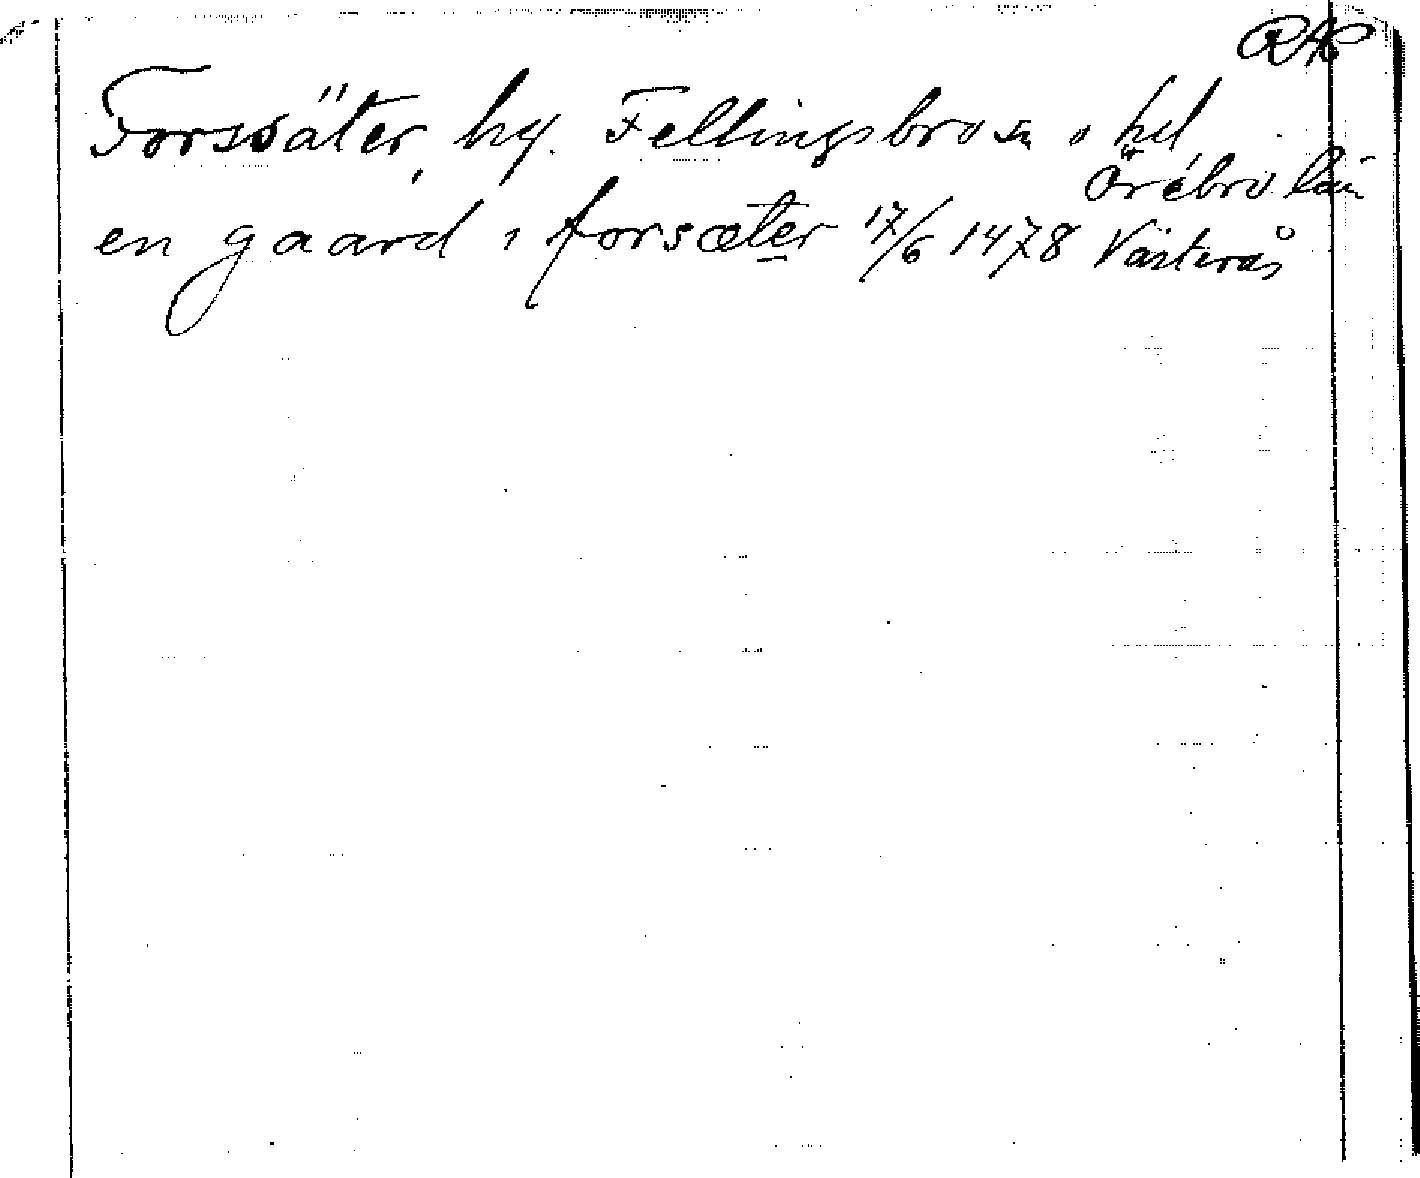 RAP
Forssäter, hg. Fellingsbro sn o hd
Örebro län
en gaard i forsæter 17/6 1478 Västerås